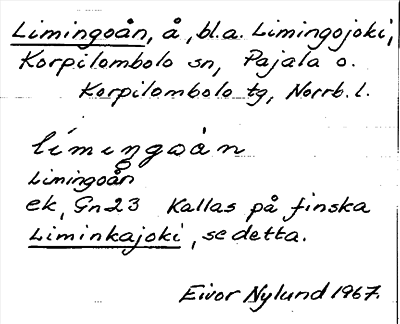 Limingoån, å, bl.a. Limingojoki,
Korpilombolo sn, Pajala o.
Korpilombolo tg, Norrb. l.
límiŋgoàn
Limingoån
ek, Gn23 Kallas på finska
Liminkajoki, se detta.
Eivor Nylund 1967.